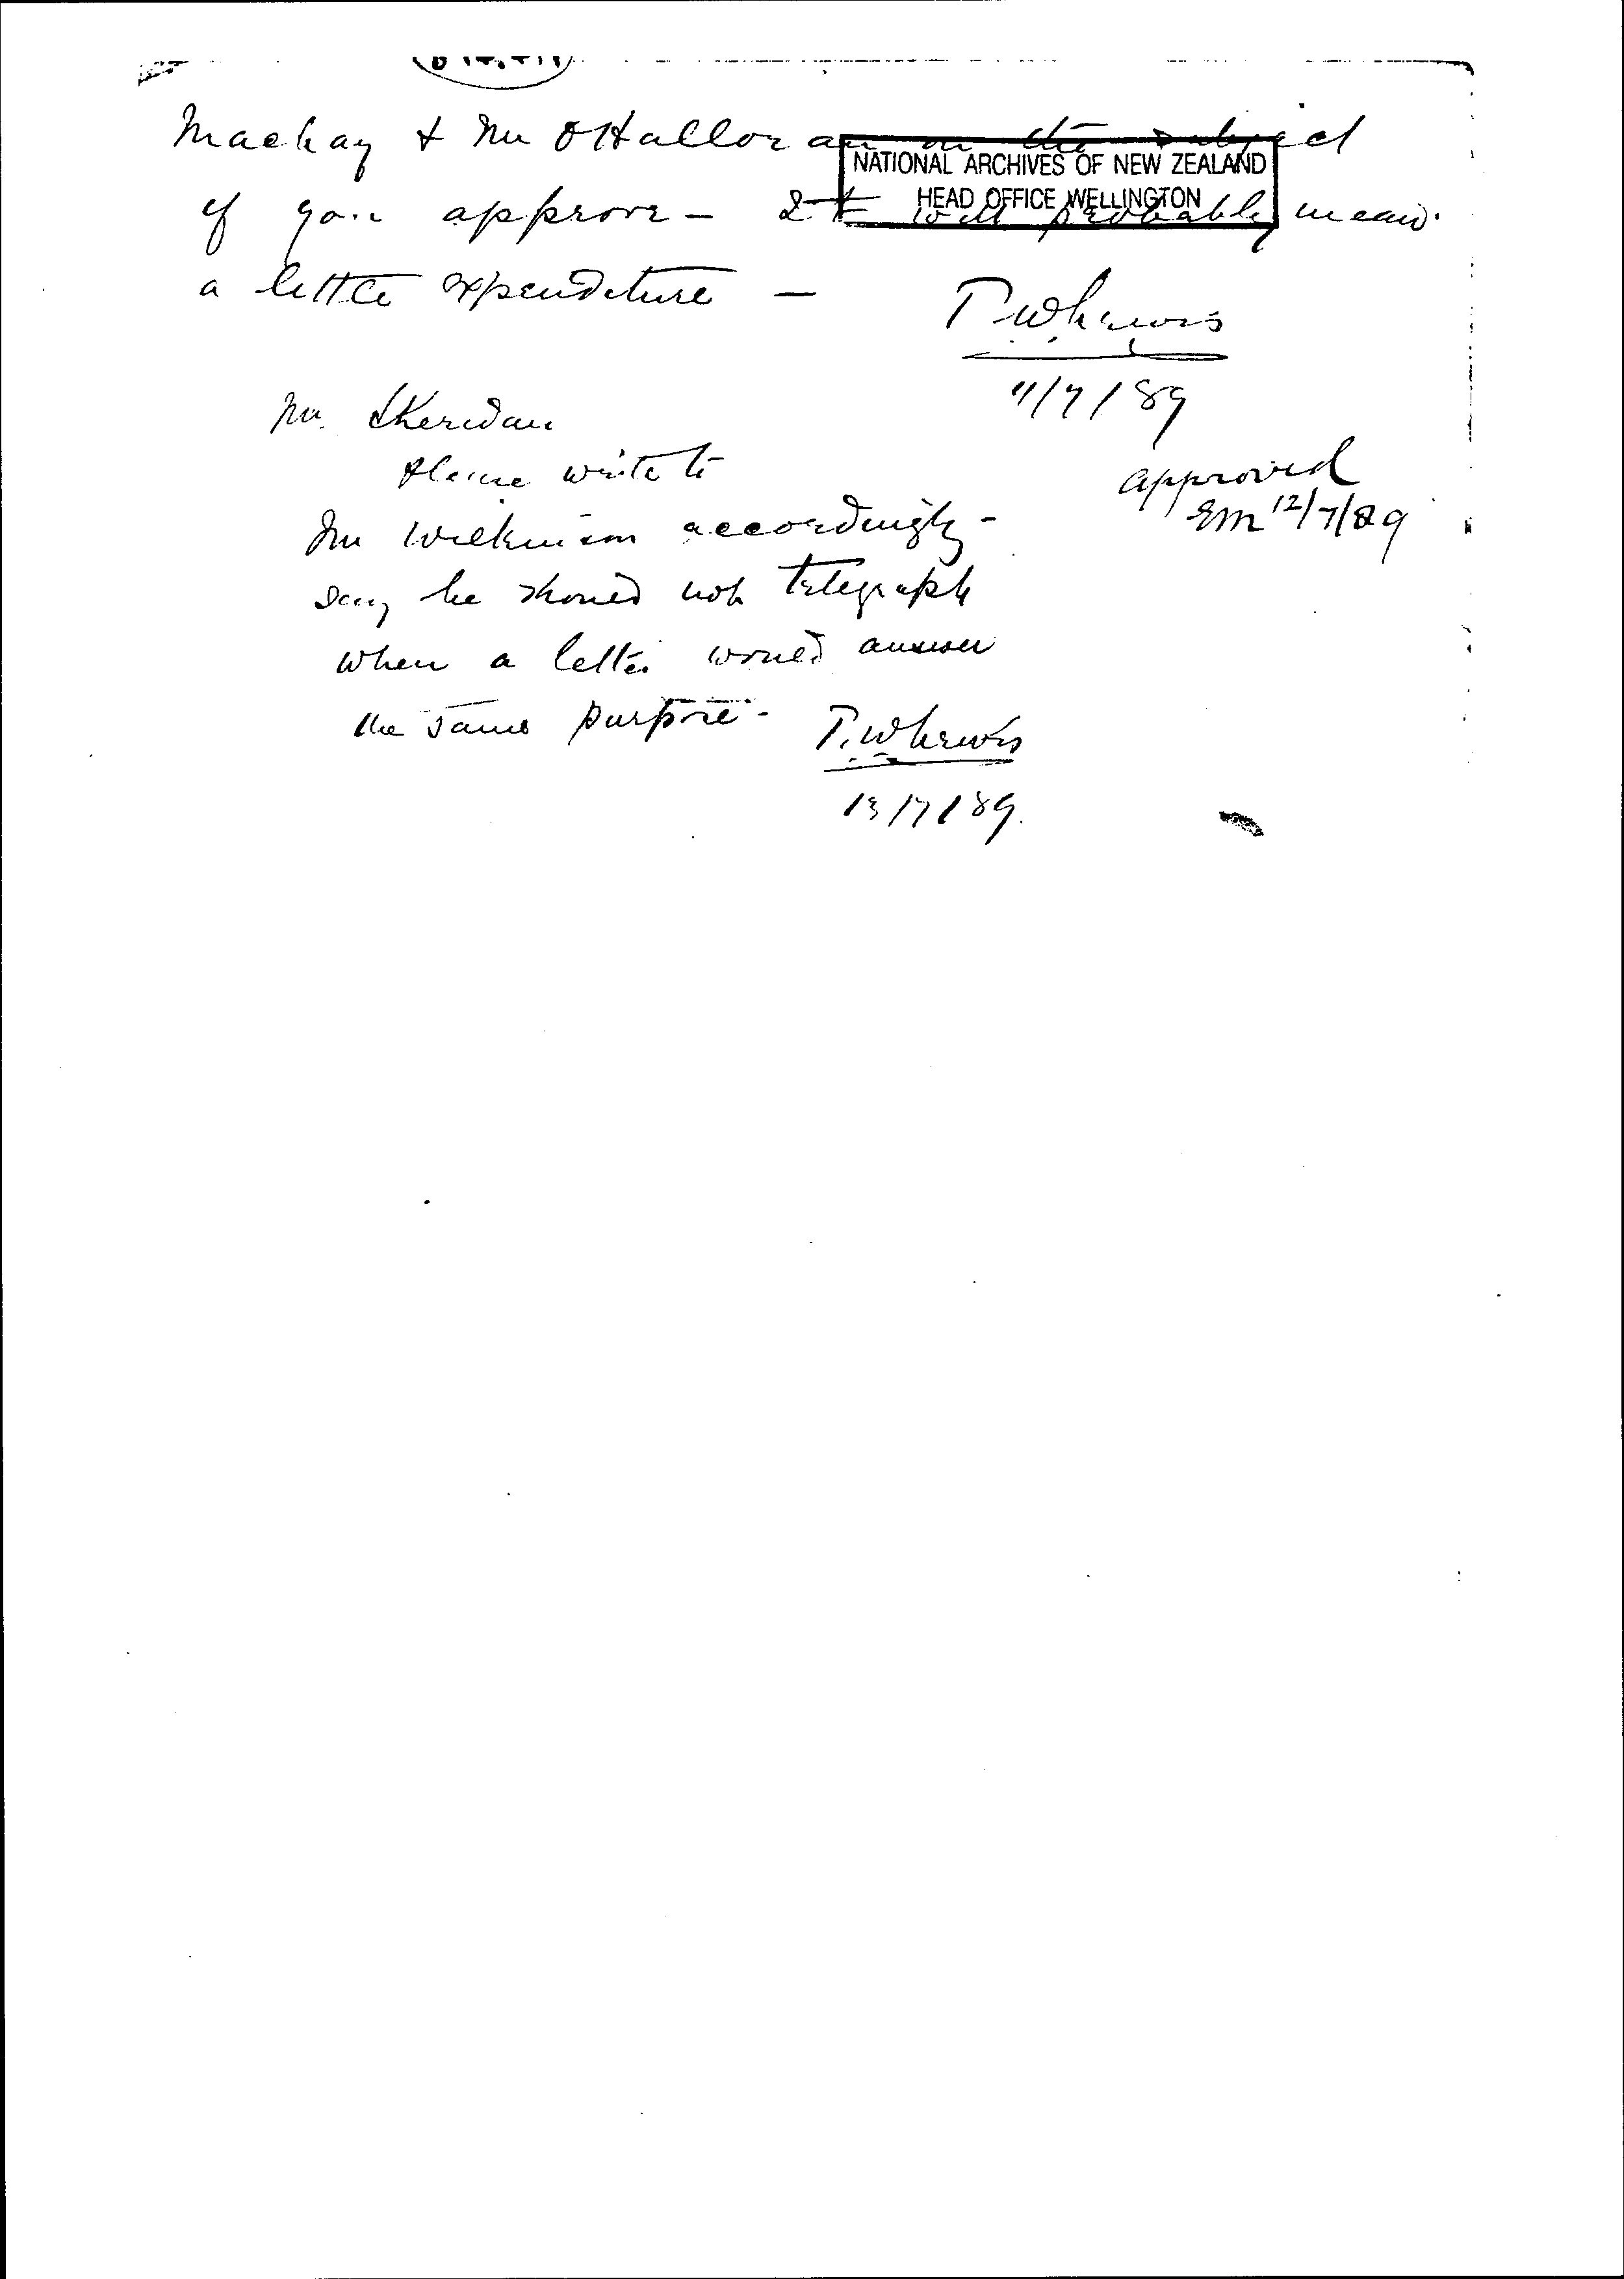 Mackay & Mr O'Halloran on the subject
NATIONAL ARCHIVES OF NEW ZEALAND
HEAD OFFICE WELLINGTON
if you approve - It will probably mean
a little expenditure -
T.W. Lewis
11/7/89
Mr. Sheridan
approved
EM 12/7/89
Please write to
Mr Wilkinson accordingly -
say he should not telegraph
when a letter would answer
the same purpose -
T.W. Lewis
13/7/89.